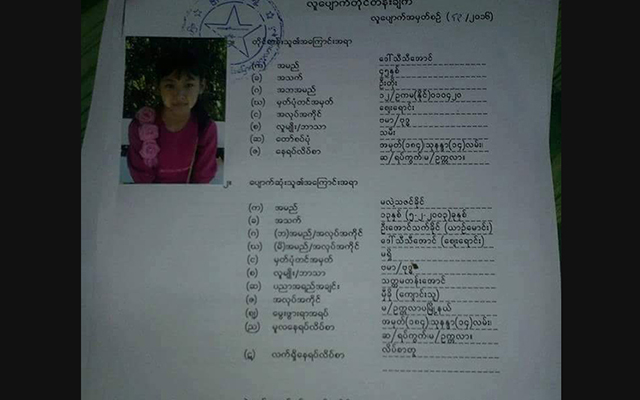 လူပျောက်တိုင်တန်းချက်
လူပျောက်အမှတ်စဉ် ( /၂၀၁၆)
၁။ တိုင်တန်းသူ၏အကြောင်းအရာ
(က) အမည် ဒေါ်သီသီအောင်
(ခ) အသက် ၄၅နှစ်
(ဂ) အဘအမည် ဦးတုံး
(ဃ) မှတ်ပုံတင်အမှတ် ၁၂/ဥကမ(နိုင်)၀၁၀၄၂၀
(င) အလုပ်အကိုင် ဈေးရောင်း
(စ) လူမျိုး/ဘာသာ ဗမာ/ဗုဒ္ဓ
(ဆ) တော်စပ်ပုံ သမီး
(ဇ) နေရပ်လိပ်စာ အမှတ်(၁၈၄)သုနန္ဒာ(၁၄)လမ်း၊
ဆ/ရပ်ကွက်၊မ/ဥက္ကလာ။
၂။ ပျောက်ဆုံးသူ၏အကြောင်းအရာ
(က) အမည် မလဲ့သဇင်ခိုင်
(ခ) အသက် ၁၃နှစ် (၅-၂-၂၀၀၃)ခုနှစ်
(ဂ) (ဘ)အမည်/အလုပ်အကိုင် ဦးအောင်သက်ခိုင် (ယာဉ်မောင်း)
(ဃ) (မိ)အမည်/အလုပ်အကိုင် ဒေါ်သီသီအောင် (ဈေးရောင်း)
(င) မှတ်ပုံတင်အမှတ် မရှိ
(စ) လူမျိုး/ဘာသာ ဗမာ/ဗုဒ္ဓ
(ဆ) ပညာအရည်အချင်း သတ္တမတန်းအောင်
(ဇ) အလုပ်အကိုင် မှီခို (ကျောင်းသူ)
(ဈ) မွေးဖွားရာအရပ် မ/ဥက္ကလာပမြို့နယ်
(ည) မူလနေရပ်လိပ်စာ အမှတ်(၁၈၄)သုနန္ဒာ(၁၄)လမ်း၊
ဆ/ရပ်ကွက်၊မ/ဥက္ကလာ။
(ဋ) လက်ရှိနေရပ်လိပ်စာ လိပ်စာတူ